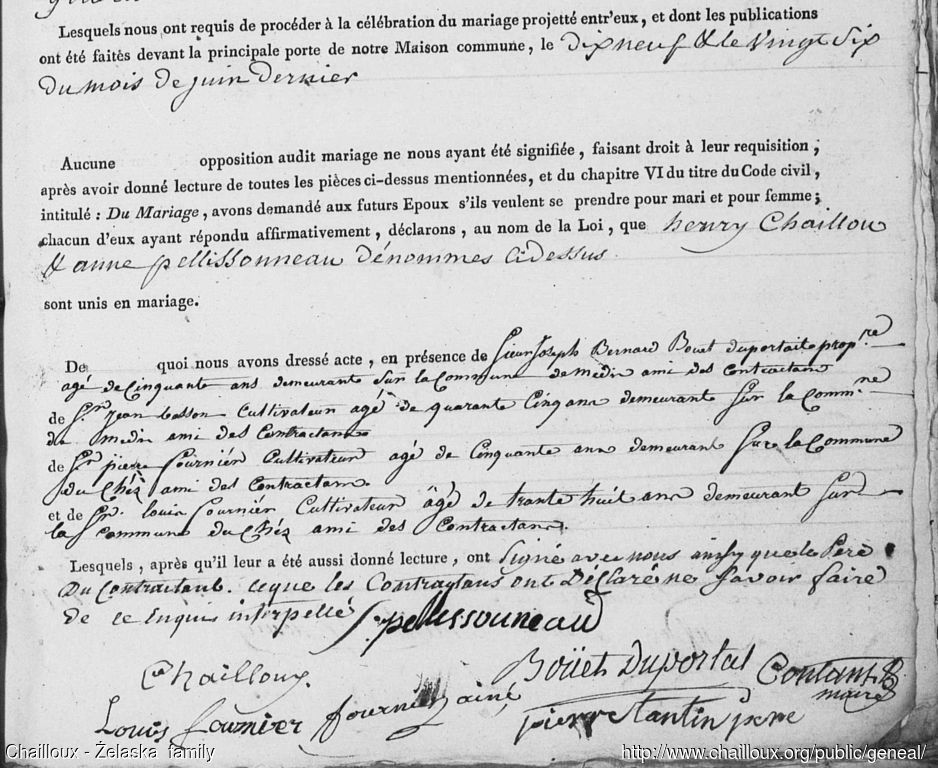 Lesquels nous ont requis de procéder à la célébration du mariage projetté entr'eux, et dont les publications
ont été faites devant la principale porte de notre Maison commune, le dix neuf & le vingt six
du mois de juin dernier
Aucune opposition audit mariage ne nous ayant été signifiée, faisant droit à leur requisition;
après avoir donné lecture de toutes les pièces ci-dessus mentionnées, et du chapitre VI du titre du Code civil,
intitulé : Du Mariage, avons demandé aux futurs Epoux s'ils veulent se prendre pour mari et pour femme;
chacun d'eux ayant répondu affirmativement, déclarons, au nom de la Loi, que henry Chaillou
& anne pellissonneau dénommés cidessus
sont unis en mariage.
De quoi nous avons dressé acte, en présence de Sieur Joseph Bernard Bouet duportait propre
agé de Cinquante ans demeurant Sur la Commune de ami des Contractans
de Sr. jean Cultivateur agé de quarante Cinq ans demeurant Sur la Comm.ne
de ami des Contractans
de Sr pierre fournier Cultivateur agé de Cinquante ans demeurant Sur la Commune
du Chéz ami des Contractans
et de Sr. louis fournier Cultivateur âgé de trante huit ans demeurant Sur
la Commune du Chéz ami des Contractans.
Lesquels, après qu'il leur a été aussi donné lecture, ont Signé avec nous ainsy que le Pere
Du Contractant. ce que les Contractans ont Déclaré ne Savoir faire
de ce Enquis interpellé
pellissouneau
Chailloux
Boüet Duportal
Coutant
maire
Louis fournier
fournier ainé
pierre tantin pere
Chailloux - Żelaska family
http://www.chailloux.org/public/geneal/